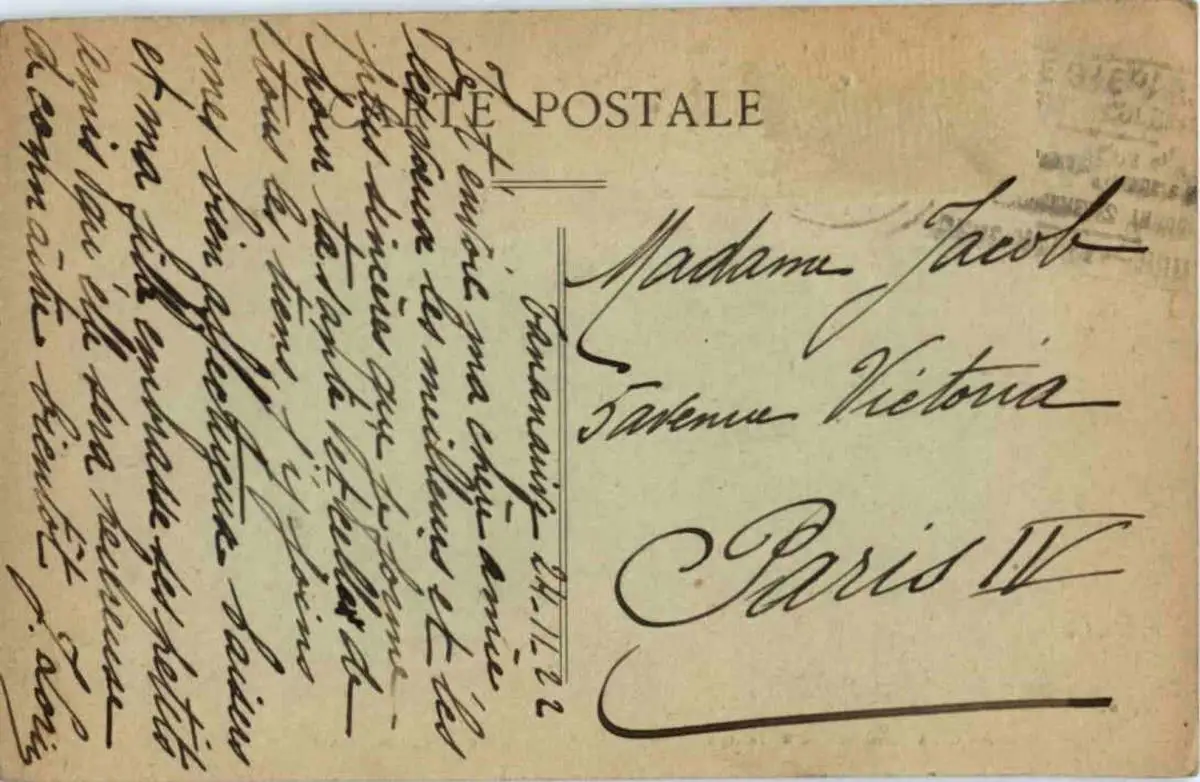 CARTE POSTALE
Tananarive 24-11-22
Je t'envoie ma chère amie
les vœux les meilleurs et les
plus sincères que je forme
pour ta santé et celle de
tous les tiens j'y joins
mes bien affectueux baisers
et ma fille embrasse tes petits
amis qu'elle sera heureuse
de connaître bientôt
Madame Jacob
5 avenue Victoria
Paris IV